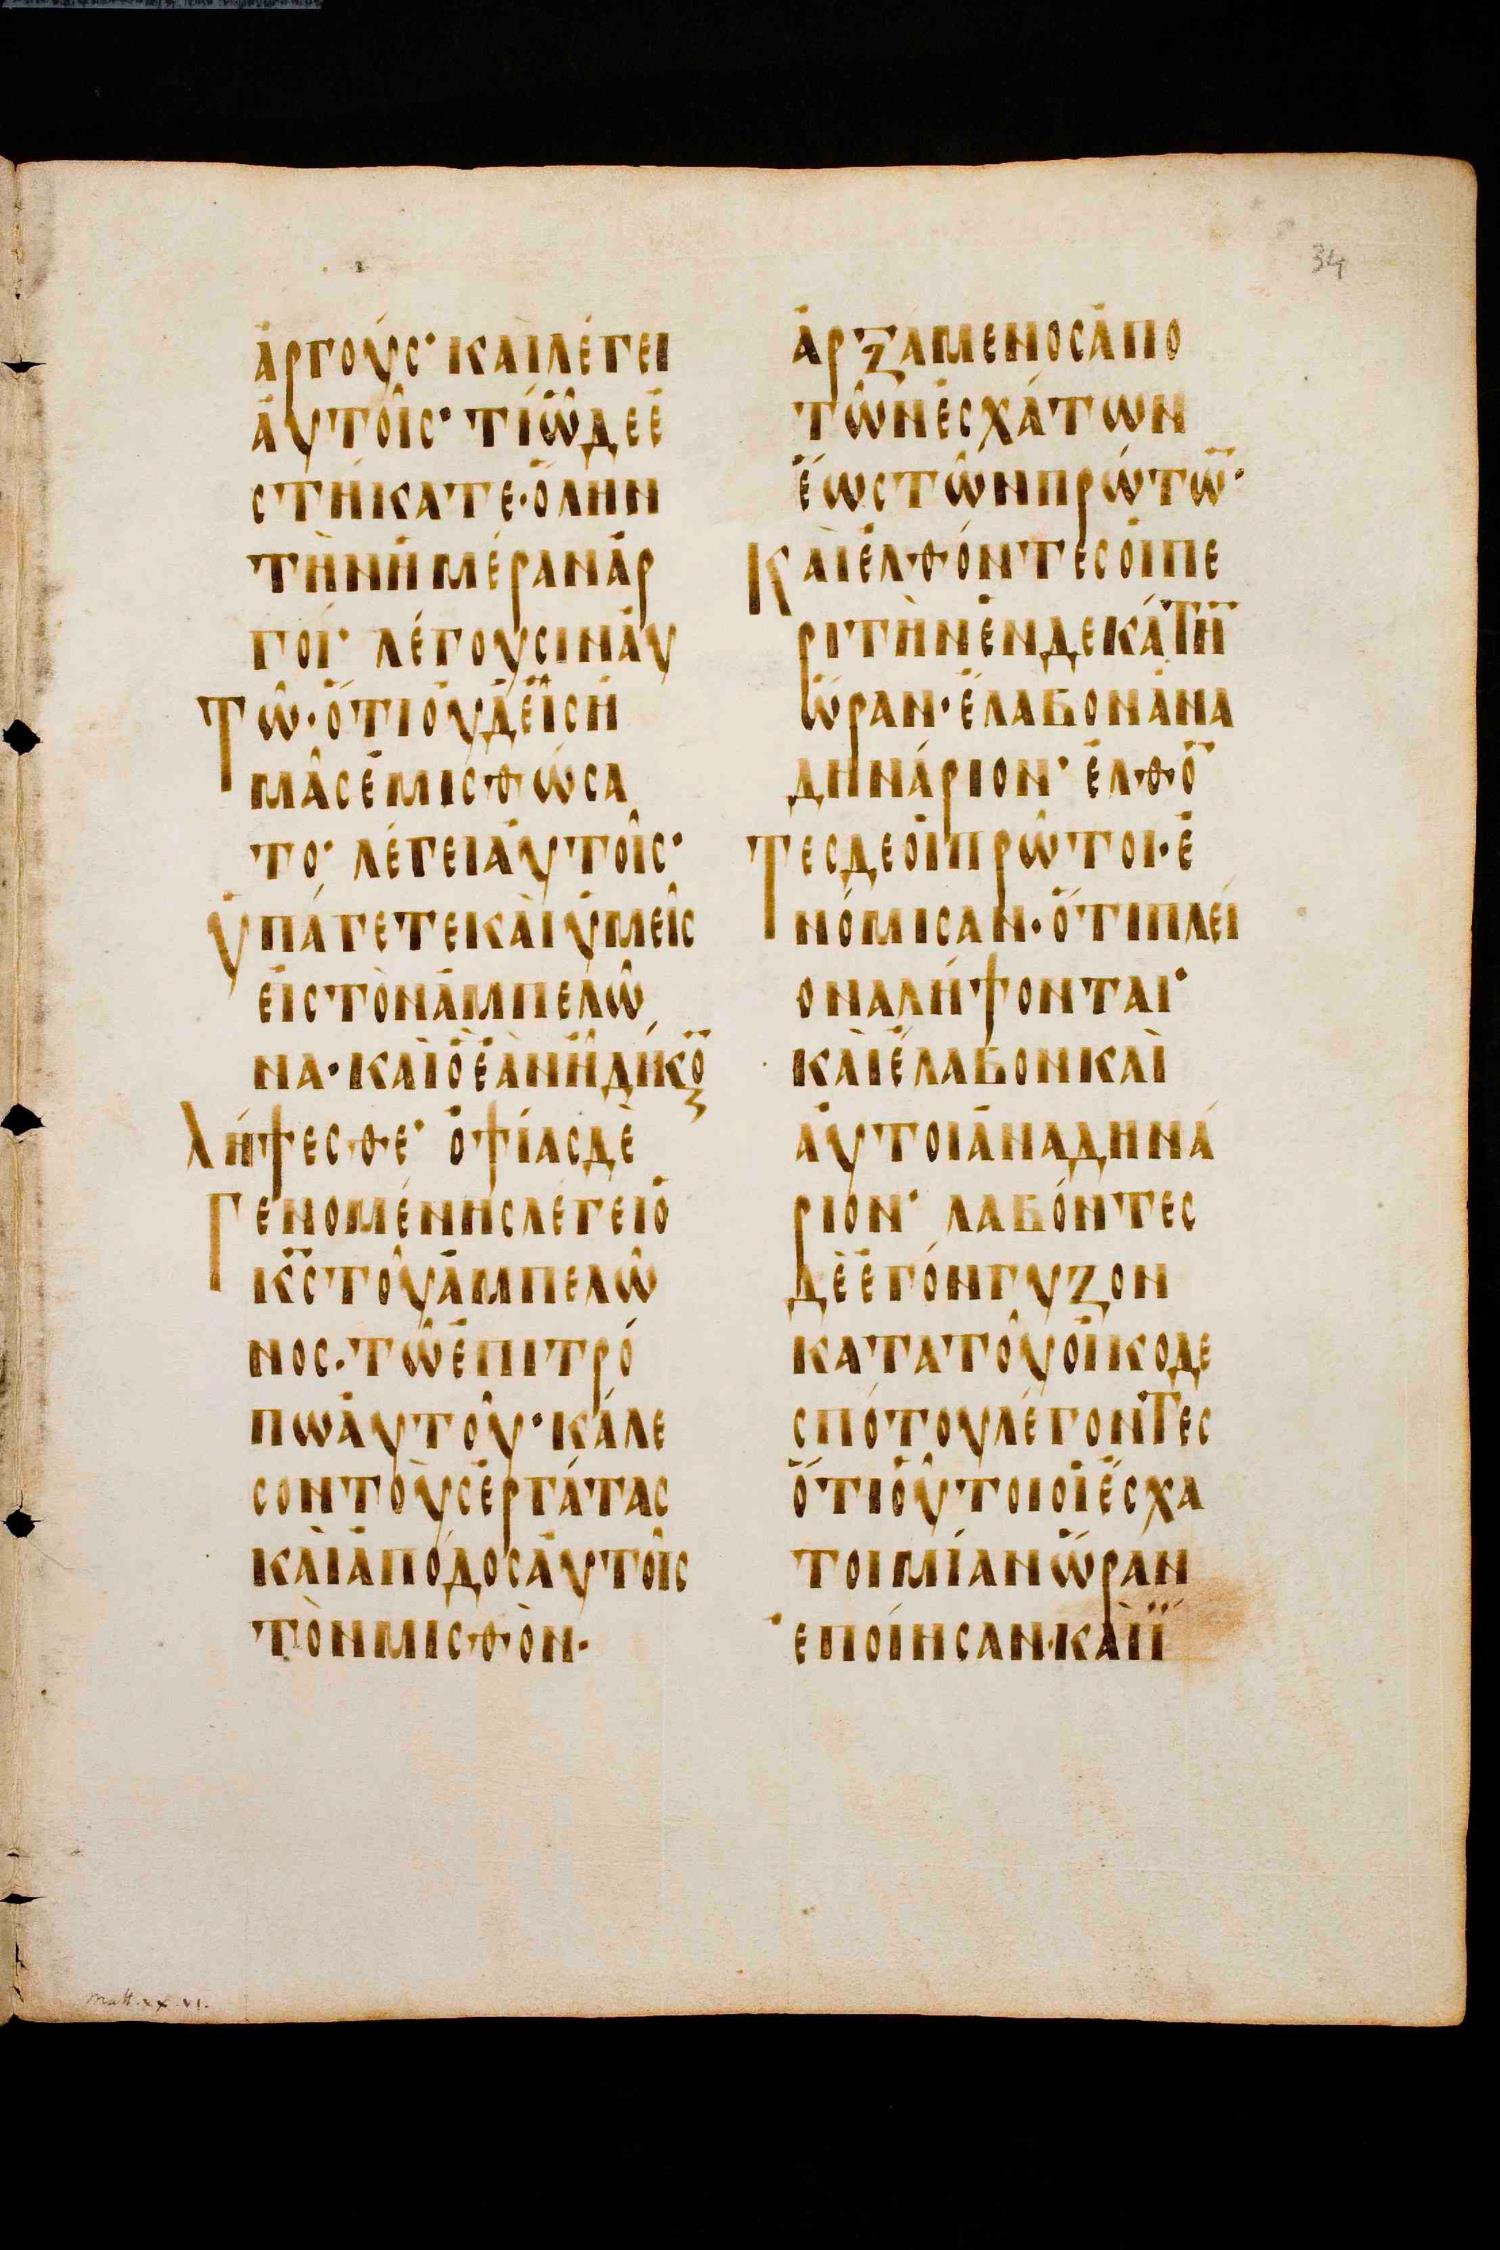 34
ἀργούς· καὶ λέγει
ἀυτοῖς· τί ὧδε ἑ
στήκατε· ὅλην
τὴν ἡμέραν ἀρ
γοί· λέγουσιν ἀυ
Τῶ· ὅτι οὐδεὶς ἡ
μᾶς ἐμισθώσα
το· λέγει ἀυτοῖς·
Ὑπάγετε καὶ ὑμεῖς
εἰς τὸν ἀμπελῶ
να· καὶ ὃ ἐὰν ἦ δίκο̅
Λήψεσθε· ὀψίας δὲ
Γενομένης λέγει ὁ
κ̅ς τοῦ ἀμπελῶ
νος· τῶ ἐπιτρό
πω ἀυτοῦ· κάλε
σον τοὺς ἐργάτας
καὶ ἀπόδος ἀυτοῖς
τὸν μισθὸν·
ἀρξάμενος ἀπο
τῶν ἐσχάτων
ἕως τῶν πρώτω̅·
Καὶ ἐλθόντες οἱ πε
ρι τὴν ἑνδεκάτη̅
ὥραν· ἔλαβον ἀνα
δηνάριον· ἐλθό̅
Τες δε οἱ πρῶτοι· ἐ
νόμισαν· ὅτι πλεί
ονα λήψονται·
καὶ ἔλαβον καὶ
ἀυτοι ἀνα δηνά
ριον· λαβόντες
δὲ ἐγόνγυζον
κατα τοῦ οἰκοδε
σπότου λέγοντες
ὅτι οὗτοι οἱ ἔσχα
τοι μίαν ὥραν
ἐποίησαν· καὶ ἴ
Matt. xx. vi.